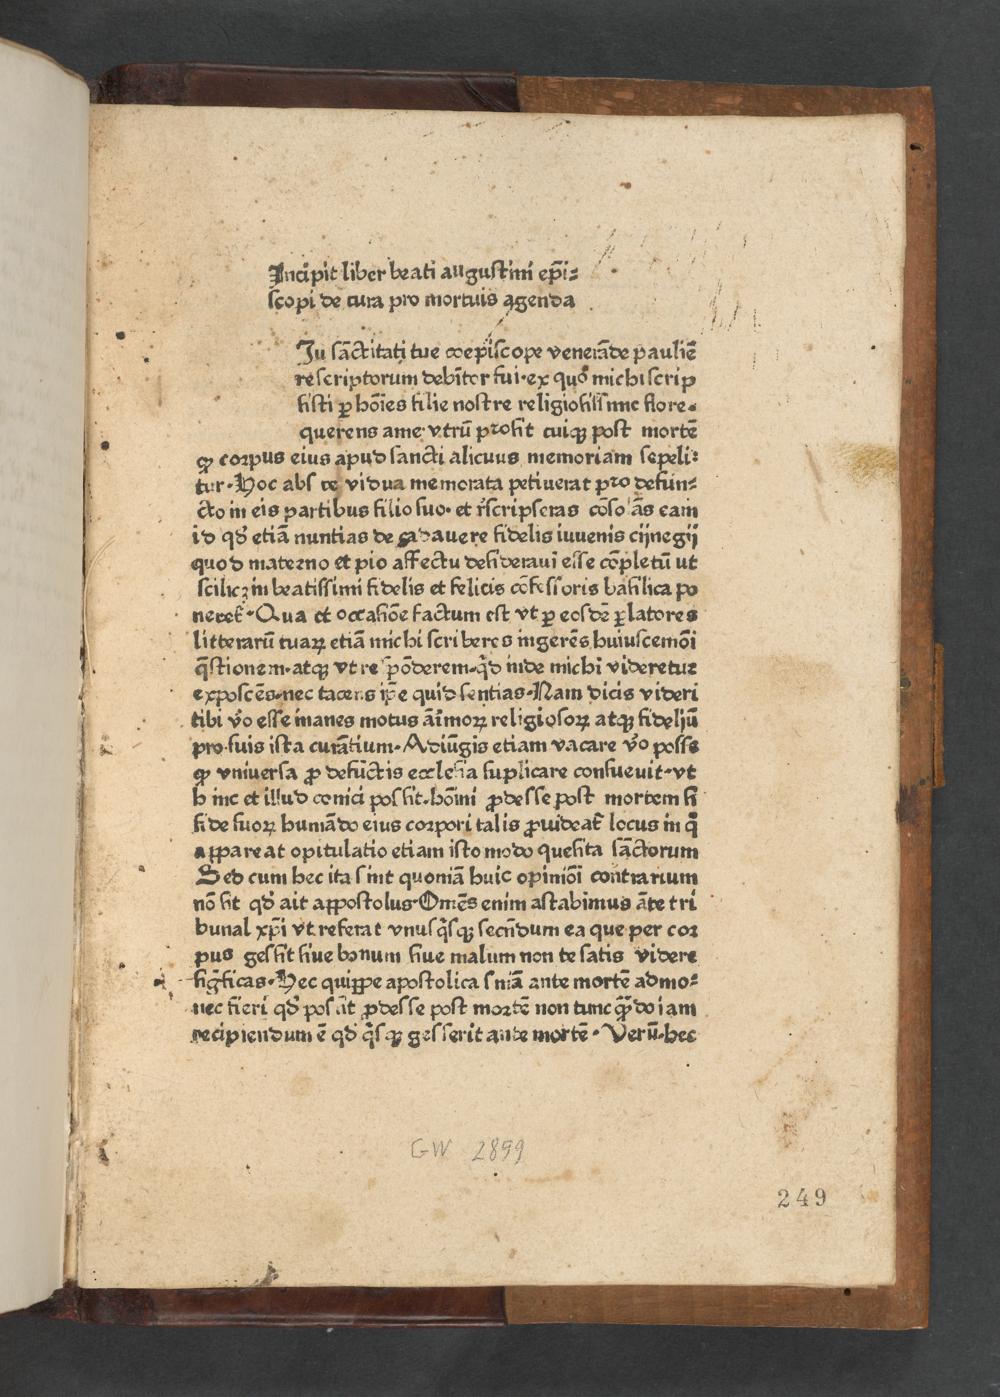 Incipit liber beati augustini ep̄i⸗
scopi de cura pro mortuis agenda
Iu sāctitati tue coep̄iscope venerāde pauliē
rescriptorum debitor fui·ex quo michi scrip
sisti ꝑ hoīes filie nostre religiosissime flore·
querens a me vtrū prosit cuiqꝫ post mortē
ꝙ corpus eius apud sancti alicuus memoriam sepeli⸗
tur·Hoc abs te vidua memorata petiuerat pro defun⸗
cto in eis partibus filio suo· et r̄scripseras cōso ās eam
id qd̄ etiā nuntias de cadauere fidelis iuuenis cijnegij
quod materno et pio affectu desideraui esse cōpletū ut
scilicꝫ in beatissimi fidelis et felicis cōfessoris basilica po
neret̄·Qua et occasiōe factum est vt ꝑ eosdē ꝑlatores
litterarū tuaꝝ etiā michi scriberes ingerēs huiuscemōi
q̄stionem·atqꝫ vt respōderem·qd̄ inde michi videretur
exposcēs·nec tacens ip̄e quid sentias·Nam dicis videri
tibi v̄o esse inanes motus aīmoꝝ religiosoꝝ atqꝫ fideliū
pro suis ista curātium·Adiūgis etiam vacare v̄o posse
ꝙ vniuersa ꝓ defūctis ecclesia suplicare consueuit·vt
hinc et illud conici possit·hoīni ꝓdesse post mortem si
fide suoꝝ humādo eius corpori talis ꝓuideat̄ locus in q̄
appareat opitulatio etiam isto modo quesita sāctorum
Sed cum hec ita sint quoniā huic opiniōi contrarium
nō sit qd̄ ait appostolus·Omēs enim astabimus āte tri
bunal xp̄i vt referat vnusq̄sqꝫ secn̄dum ea que per cor
pus gessit siue bonum siue malum non te satis videre
sigīficas·Hec quippe apostolica snīa ante mortē admo⸗
nec fieri qd̄ possit ꝓdesse post mortē non tunc qn̄do iam
recipiendum ē qd̄ q̄sqꝫ gesserit ante mortē·Verū·hec
GW 2899
249